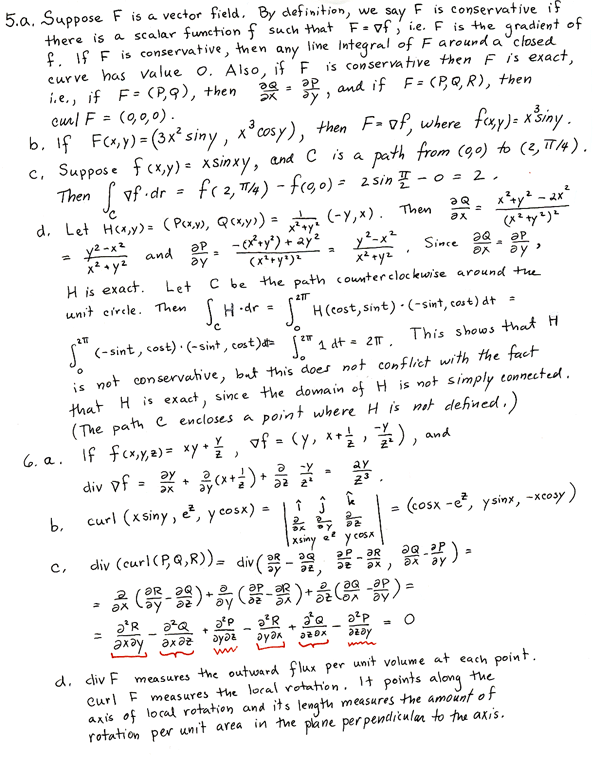 5.a. Suppose F is a vector field. By definition, we say F is conservative if
there is a scalar function f such that F = ∇f, i.e. F is the gradient of
f. If F is conservative, then any line integral of F around a closed
curve has value 0. Also, if F is conservative then F is exact,
i.e., if F = (P,Q), then ∂Q/∂x = ∂P/∂y, and if F = (P,Q,R), then
curl F = (0,0,0).
b. If F(x,y) = (3x² siny, x³cosy), then F = ∇f, where f(x,y) = x³siny.
c. Suppose f(x,y) = x sinxy, and C is a path from (0,0) to (2, π/4).
Then ∫_C ∇f·dr = f(2, π/4) − f(0,0) = 2 sin π/2 − 0 = 2.
d. Let H(x,y) = (P(x,y), Q(x,y)) = 1/(x²+y²) (−y,x). Then ∂Q/∂x = (x²+y²−2x²)/(x²+y²)²
= (y²−x²)/(x²+y²) and ∂P/∂y = (−(x²+y²)+2y²)/(x²+y²)² = (y²−x²)/(x²+y²). Since ∂Q/∂x = ∂P/∂y,
H is exact. Let C be the path counterclockwise around the
unit circle. Then ∫_C H·dr = ∫_0^2π H(cost, sint)·(−sint, cost) dt =
∫_0^2π (−sint, cost)·(−sint, cost)dt = ∫_0^2π 1 dt = 2π. This shows that H
is not conservative, but this does not conflict with the fact
that H is exact, since the domain of H is not simply connected.
(The path C encloses a point where H is not defined.)
6.a. If f(x,y,z) = xy + y/z, ∇f = (y, x+1/z, −y/z²), and
div ∇f = ∂y/∂x + ∂/∂y (x+1/z) + ∂/∂z −y/z² = 2y/z³.
b. curl (xsiny, e^z, ycosx) = | î ĵ k̂ ; ∂/∂x ∂/∂y ∂/∂z ; xsiny e^z ycosx | = (cosx −e^z, ysinx, −xcosy)
c. div (curl(P,Q,R)) = div(∂R/∂y − ∂Q/∂z, ∂P/∂z − ∂R/∂x, ∂Q/∂x − ∂P/∂y) =
= ∂/∂x (∂R/∂y − ∂Q/∂z) + ∂/∂y (∂P/∂z − ∂R/∂x) + ∂/∂z (∂Q/∂x − ∂P/∂y) =
= ∂²R/∂x∂y − ∂²Q/∂x∂z + ∂²P/∂y∂z − ∂²R/∂y∂x + ∂²Q/∂z∂x − ∂²P/∂z∂y = 0
d. div F measures the outward flux per unit volume at each point.
curl F measures the local rotation. It points along the
axis of local rotation and its length measures the amount of
rotation per unit area in the plane perpendicular to the axis.